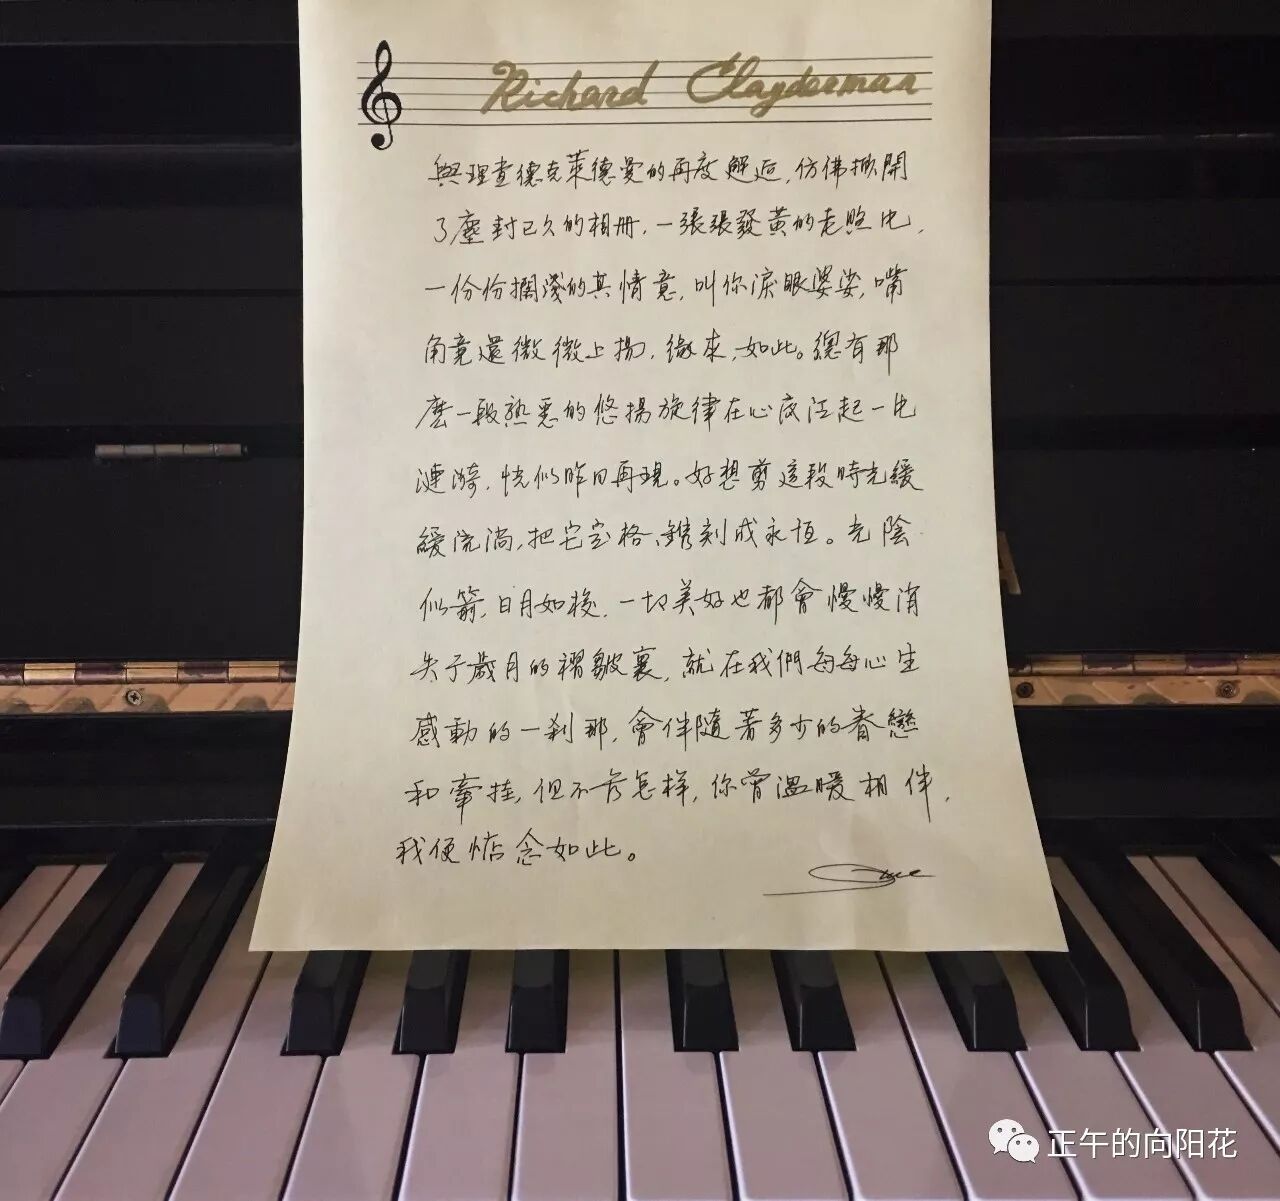 Richard Clayderman
與理查德克萊德曼的再度邂逅，仿佛掀開
了塵封已久的相册，一張張發黃的老照片，
一份份擱淺的真情意，叫你淚眼婆娑，嘴
角竟還微微上揚，緣來，如此。總有那
麽一段熟悉的悠揚旋律在心底泛起一片
漣漪，恍似昨日再現。好想剪這段時光緩
緩流淌，把它定格、鐫刻成永恒。光陰
似箭，日月如梭，一切美好也都會慢慢消
失于歲月的褶皺裏，就在我們每每心生
感動的一刹那，會伴隨著多少的眷戀
和牽挂，但不管怎样，你曾溫暖相伴，
我便惦念如此。
正午的向阳花